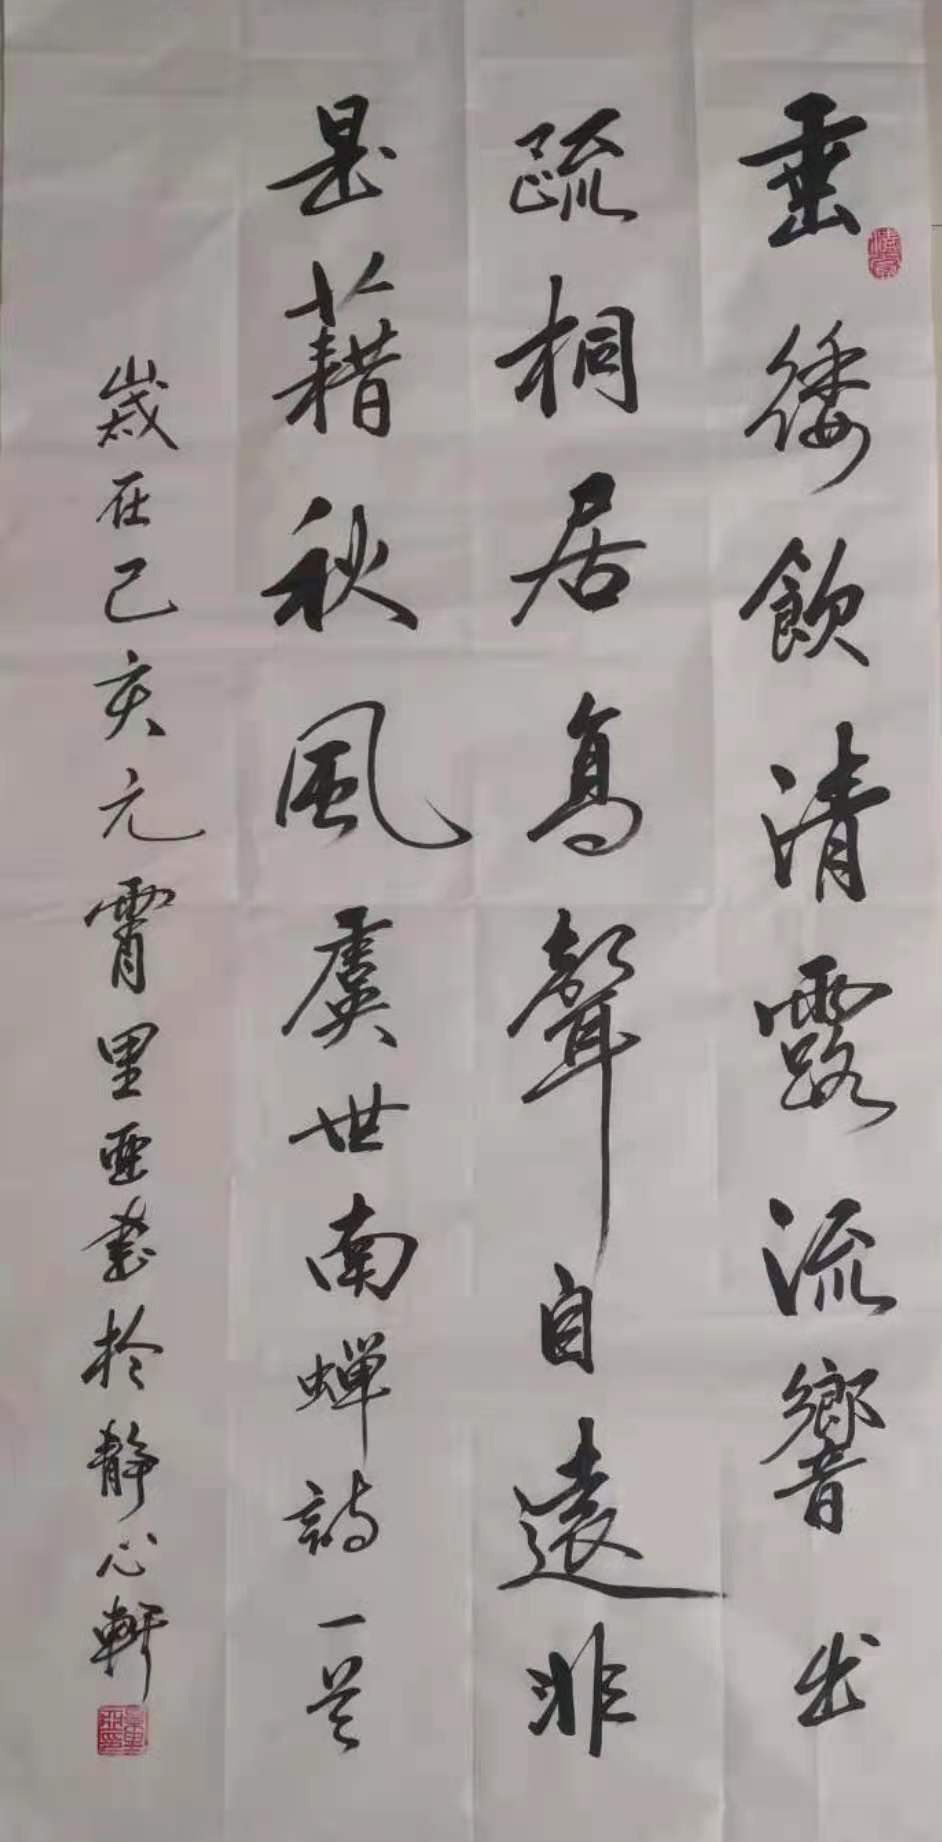 垂緌飲清露流響出
疏桐居高聲自遠非
是藉秋風虞世南蟬詩一首
歲在己亥元霄里亜書於靜心軒